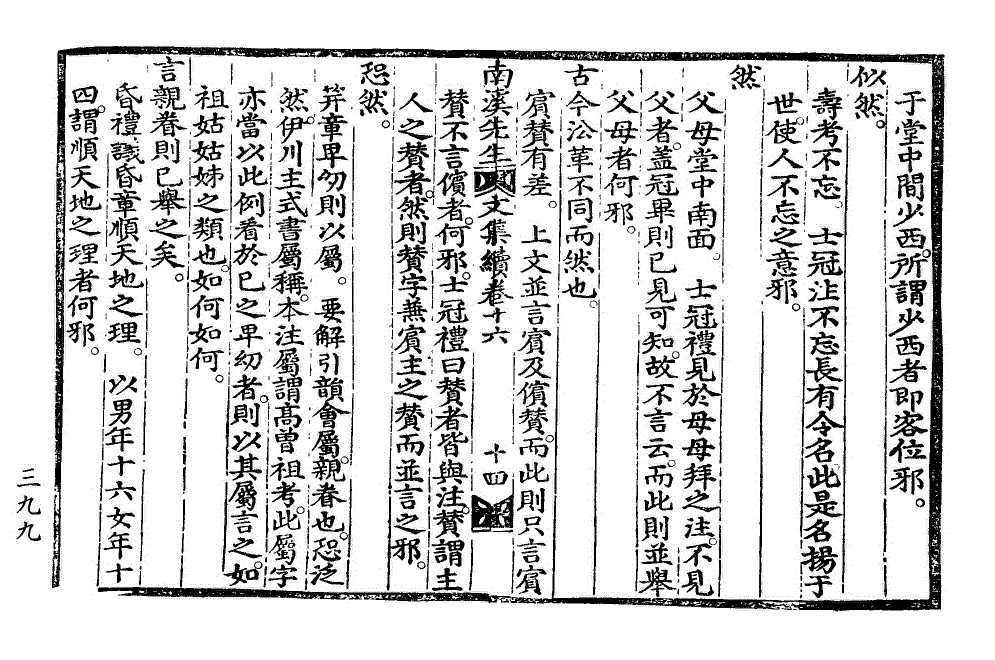 于堂中間少西。所謂少西者即客位邪。
似然。
壽考不忘。 士冠注不忘長有令名。此是名揚于
世。使人不忘之意邪。
然
父母堂中南面。 士冠禮見於母母拜之注。不見
父者。蓋冠畢則已見可知。故不言云。而此則並舉
父母者何邪。
古今㳂革不同而然也。
賓賛有差。 上文並言賓及儐賛。而此則只言賓
南溪先生文集續卷十六 十四
賛不言儐者。何邪。士冠禮曰賛者皆與注。賛謂主
人之賛者。然則賛字兼賓主之賛而並言之邪。
恐然。
笄章卑幼則以屬。 要解引韻會屬。親眷也。恐泛
然。伊川主式書屬稱。本注屬謂高曾祖考。此屬字
亦當以此例看於已之卑幼者。則以其屬言之。如
祖姑姑姊之類也。如何如何。
言親眷則已舉之矣。
昏禮議昏章順天地之理。 以男年十六女年十
四。謂順天地之理者何邪。
三九九